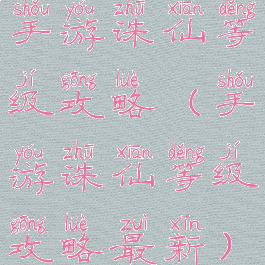 shǒu yóu zhū xiān děng
手游诛仙等
jí gōng lüè shǒu
级攻略（手
yóu zhū xiān děng jí
游诛仙等级
gōng lüè zuì xīn
攻略最新）